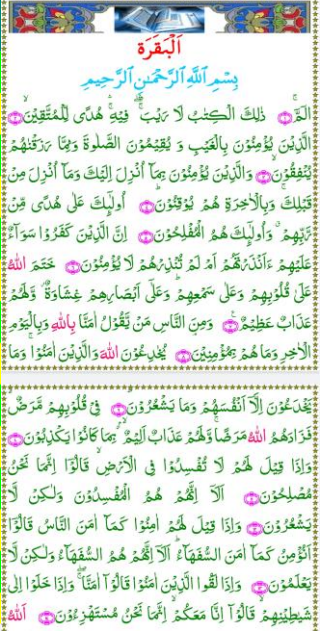 اَلْبَقَرَة
بِسْمِ اللّٰهِ الرَّحْمٰنِ الرَّحِيْمِ
الٓمّٓ ۚ ذٰلِكَ الْكِتٰبُ لَا رَيْبَ ۛ فِيْهِ ۛ هُدًى لِّلْمُتَّقِيْنَ ۙ
الَّذِيْنَ يُؤْمِنُوْنَ بِالْغَيْبِ وَ يُقِيْمُوْنَ الصَّلٰوةَ وَمِمَّا رَزَقْنٰهُمْ
يُنْفِقُوْنَ ۙ وَالَّذِيْنَ يُؤْمِنُوْنَ بِمَآ اُنْزِلَ اِلَيْكَ وَمَآ اُنْزِلَ مِنْ
قَبْلِكَ ۚ وَبِالْاٰخِرَةِ هُمْ يُوْقِنُوْنَ ؕ اُولٰٓئِكَ عَلٰى هُدًى مِّنْ
رَّبِّهِمْ ۗ وَاُولٰٓئِكَ هُمُ الْمُفْلِحُوْنَ اِنَّ الَّذِيْنَ كَفَرُوْا سَوَآءٌ
عَلَيْهِمْ ءَاَنْذَرْتَهُمْ اَمْ لَمْ تُنْذِرْهُمْ لَا يُؤْمِنُوْنَ خَتَمَ اللّٰهُ
عَلٰى قُلُوْبِهِمْ وَعَلٰى سَمْعِهِمْ ؕ وَعَلٰٓى اَبْصَارِهِمْ غِشَاوَةٌ ۫ وَّلَهُمْ
عَذَابٌ عَظِيْمٌ وَمِنَ النَّاسِ مَنْ يَّقُوْلُ اٰمَنَّا بِاللّٰهِ وَبِالْيَوْمِ
الْاٰخِرِ وَمَا هُمْ بِمُؤْمِنِيْنَ ۘ يُخٰدِعُوْنَ اللّٰهَ وَالَّذِيْنَ اٰمَنُوْا ۚ وَمَا
يَخْدَعُوْنَ اِلَّآ اَنْفُسَهُمْ وَمَا يَشْعُرُوْنَ ؕ فِيْ قُلُوْبِهِمْ مَّرَضٌ ۙ
فَزَادَهُمُ اللّٰهُ مَرَضًا ۚ وَلَهُمْ عَذَابٌ اَلِيْمٌ ۢ ۙ بِمَا كَانُوْا يَكْذِبُوْنَ
وَاِذَا قِيْلَ لَهُمْ لَا تُفْسِدُوْا فِي الْاَرْضِ ۙ قَالُوْٓا اِنَّمَا نَحْنُ
مُصْلِحُوْنَ اَلَآ اِنَّهُمْ هُمُ الْمُفْسِدُوْنَ وَلٰكِنْ لَّا
يَشْعُرُوْنَ وَاِذَا قِيْلَ لَهُمْ اٰمِنُوْا كَمَآ اٰمَنَ النَّاسُ قَالُوْٓا
اَنُؤْمِنُ كَمَآ اٰمَنَ السُّفَهَآءُ ؕ اَلَآ اِنَّهُمْ هُمُ السُّفَهَآءُ وَلٰكِنْ لَّا
يَعْلَمُوْنَ وَاِذَا لَقُوا الَّذِيْنَ اٰمَنُوْا قَالُوْٓا اٰمَنَّا ۖ وَاِذَا خَلَوْا اِلٰى
شَيٰطِيْنِهِمْ ۙ قَالُوْٓا اِنَّا مَعَكُمْ ۙ اِنَّمَا نَحْنُ مُسْتَهْزِءُوْنَ اَللّٰهُ